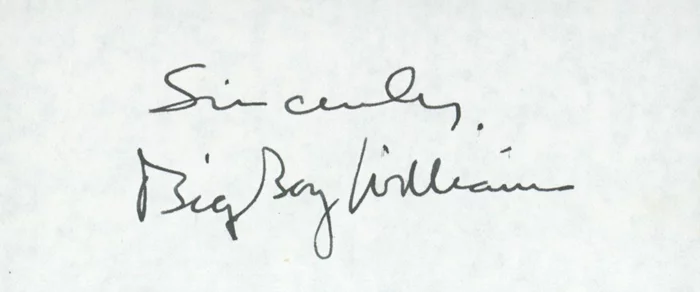 Sincerely,
Big Boy Williams